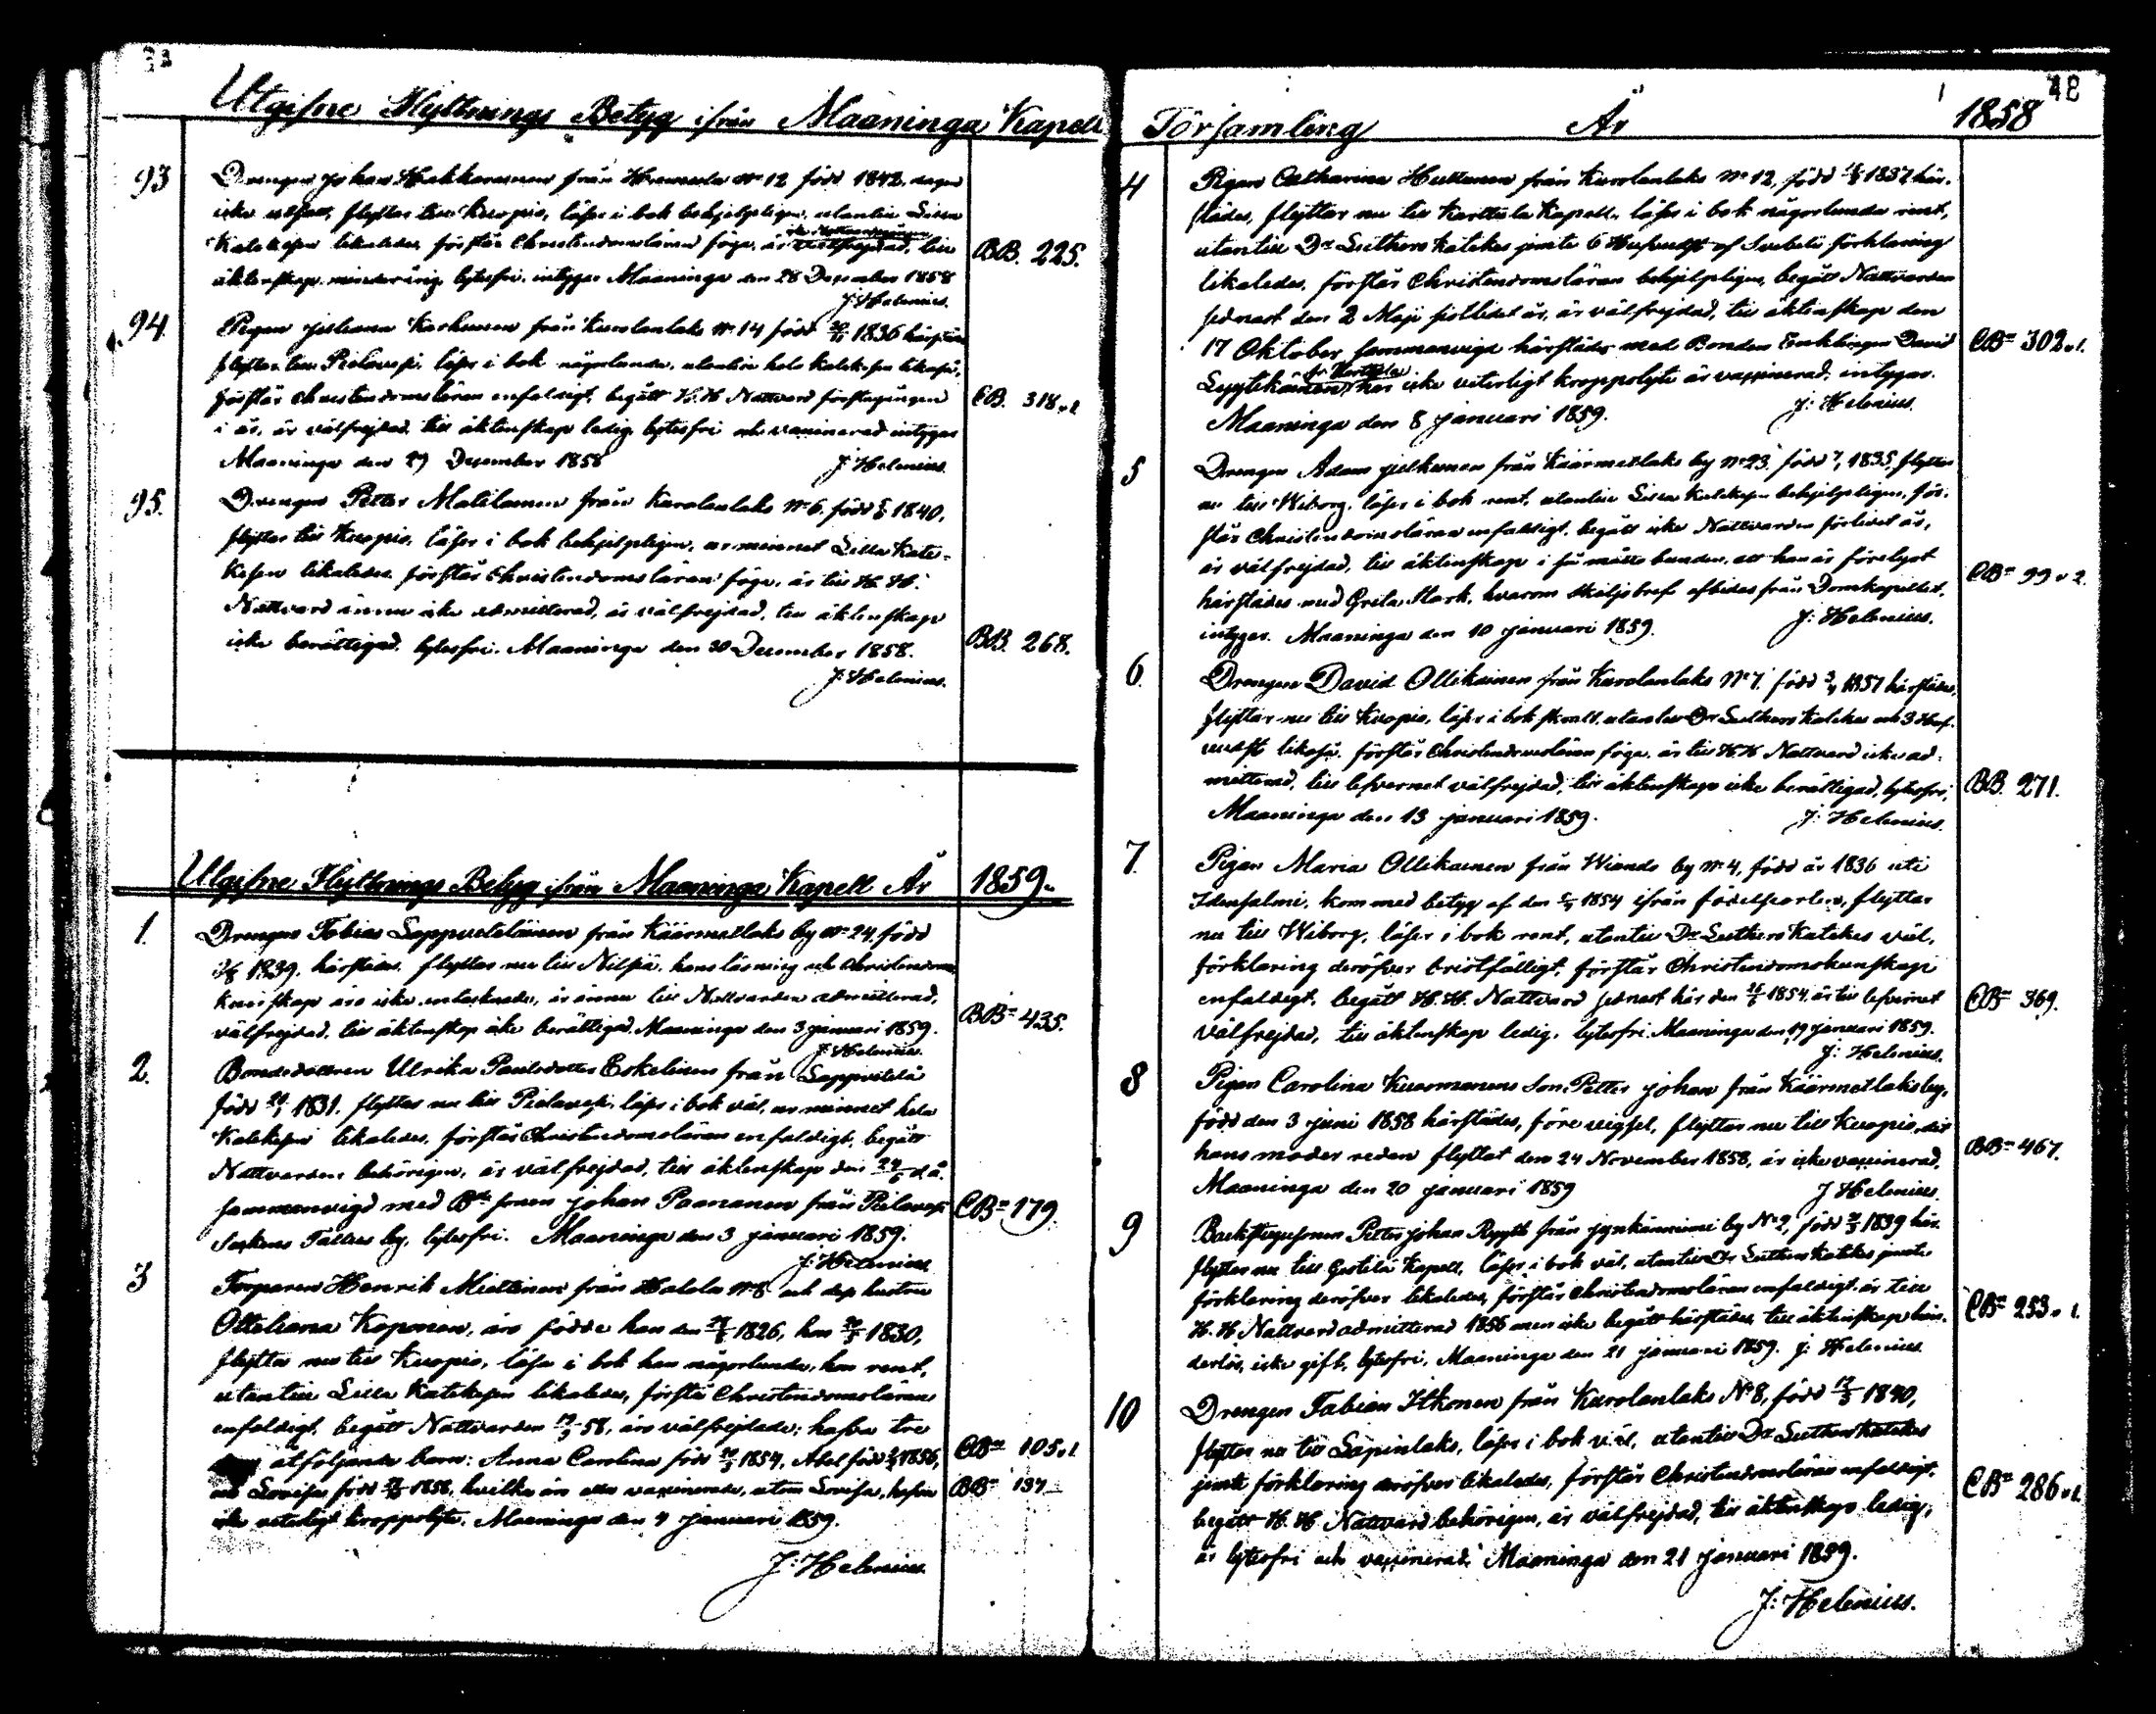 Utgifne Flyttnings Betyg ifrån Maaninga Kapell
93 Drengen Johan Hakkarainen från No 12 född 1842,
icke flyttar till Kuopio, läser i bok behjelpligen, utantill Lilla
Katekesen likaledes, förstår Christendomsläran föga, är till
äktenskap minderårig, lytesfri, intygar Maaninga den 28 December 1858
BB. 225.
J: Helenius.
94. Pigan Karhunen från Kurolanlaks No 14 född 1836 härstädes
flyttar till Pielavesi, läser i bok någorlunda, utantill hela Katekesen likaså,
förstår Christendomsläran enfaldigt, begått H. H. Nattvard
i år, är välfrejdad, till äktenskap ledig, lytesfri och vaccinerad intygar
CB. 318
Maaninga den 29 December 1858
J: Helenius.
95. Drengen Petter Matilainen från Kurolanlaks No 6. född 1840,
flyttar till Kuopio, läser i bok behjelpligen, ur minnet Lilla Kate-
kesen likaledes, förstår Christendomsläran föga, är till H. H.
Nattvard ännu icke admitterad, är välfrejdad, till äktenskap
icke berättigad, lytesfri. Maaninga den 30 December 1858.
BB. 268.
J: Helenius.
Utgifne Flyttnings Betyg ifrån Maaninga Kapell År 1859.
1. Drengen Tobias Lappveteläinen från Käärmelaks by No 24, född
1839, härstädes, flyttar nu till Nilsiä, hans läsning och Christendoms
kunskap äro icke antecknade, är ännu till Nattvarden admitterad,
välfrejdad, till äktenskap icke berättigad, Maaninga den 3 januari 1859.
BB= 435.
J: Helenius.
2. Bondedottren Ulrika Paulsdotter Eskelinen från Lappvetelä
född 1831, flyttar nu till Pielavesi, läser i bok väl, ur minnet hela
Katekesen likaledes, förstår Christendomsläran enfaldigt, begått
Nattvarden behörigen, är välfrejdad, till äktenskap den d. å.
sammanvigd med Bde sonen Johan Paananen från Pielavesi
CB= 179.
Sockens by, lytesfri. Maaninga den 3 januari 1859.
J: Helenius.
3 Torparen Henrik Miettinen från Halola No 8 och dess hustru
Ottiliana Koponen, äro födde han den 1826, hon 1830,
flytta nu till Kuopio, läsa i bok han någorlunda, hon rent,
utantill Lilla Katekesen likaledes, förstå Christendomsläran
enfaldigt, begått Nattvarden 58, äro välfrejdade; hafva tre
åtföljande barn: Anna Carolina född 1854, Abel född 1856,
CB= 105
och Lovisa född 1858, hvilka äro alla vaccinerade, utom Lovisa, hafva
BB= 137
icke veterligt kroppslyte. Maaninga den 4 januari 1859.
J: Helenius.
48
Församling År 1858
4 Pigan Catharina Huttunen från Kurolanlaks No 12, född 1837 här-
städes, flyttar nu till Karttula Kapell, läser i bok någorlunda rent,
utantill Dr Luthers Katekes jemte 6 Hufvudst af Svebelii förklaring
likaledes, förstår Christendomsläran behjelpligen, begått Nattvarden
sednast den 2 Maji sistlidet år, är välfrejdad, till äktenskap den
17 Oktober sammanvigd härstädes med Bonden Enklingen David
CB= 302
fr Karttula
Lyytikäinen, har icke veterligt kroppslyte är vaccinerad, intygar.
Maaninga den 8 januari 1859.
J: Helenius.
5 Drengen Adam Julkunen från Käärmelaks by No 23. född 1835, flyttar
nu till Wiborg, läser i bok rent, utantill Lilla Katekesen behjelpligen, för-
står Christendomsläran enfaldigt, begått icke Nattvarden förlidet år,
är välfrejdad, till äktenskap i så måtto bunden, att han är förelyst
CB= 99
härstädes med Greta Stark, hvarom skiljobref afbidas från Domkapitlet,
intygar. Maaninga den 10 januari 1859.
J: Helenius.
6. Drengen David Ollikainen från Kurolanlaks No 7. född härstädes,
flyttar nu till Kuopio, läser i bok utantill Dr Luthers Katekes och 3 Huf-
vudst likaså, förstår Christendomsläran föga, är till H. H. Nattvard icke ad-
mitterad, till lefvernet välfrejdad, till äktenskap icke berättigad, lytesfri,
BB. 271.
Maaninga den 13 januari 1859.
J: Helenius.
7. Pigan Maria Ollikainen från Wianda by No 4, född år 1836 uti
Idensalmi, kom med betyg af den 1854 ifrån födelseorten, flyttar
nu till Wiborg, läser i bok rent, utantill Dr Luthers Katekes väl,
förklaring deröfver bristfälligt, förstår Christendomskunskap
enfaldigt, begått H. H. Nattvard sednast här den 1854, är till lefvernet
CB= 369.
välfrejdad, till äktenskap ledig, lytesfri. Maaninga den 19 januari 1859.
J: Helenius.
8 Pigan Carolina Kuosmanens son Petter Johan från Käärmelaks by,
född den 3 juni 1858 härstädes, före vigsel, flyttar nu till Kuopio, dit
hans moder redan flyttat den 24 November 1858, är icke vaccinerad,
BB= 467.
Maaninga den 20 januari 1859
J Helenius.
9 Backstugusonen Petter Johan från Jynkänniemi by No 2, född 1839 här.
flyttar nu till Kapell, läser i bok väl, utantill Dr Luthers Katekes jemte
förklaring deröfver likaledes, förstår Christendomsläran enfaldigt, är till
H. H. Nattvard admitterad 1856 men icke begått härstädes, till äktenskap hin-
CB= 253
derlös, icke gift, lytesfri, Maaninga den 21 januari 1859. J: Helenius.
10 Drengen Fabian Itkonen från Kurolanlaks No 8, född 1840,
flyttar nu till Lapinlaks, läser i bok väl, utantill Dr Luthers Katekes
jemte förklaring deröfver likaledes, förstår Christendomsläran enfaldigt,
begått H. H. Nattvard behörigen, är välfrejdad, till äktenskap ledig,
CB= 286
är lytesfri och vaccinerad, Maaninga den 21 januari 1859.
J: Helenius.